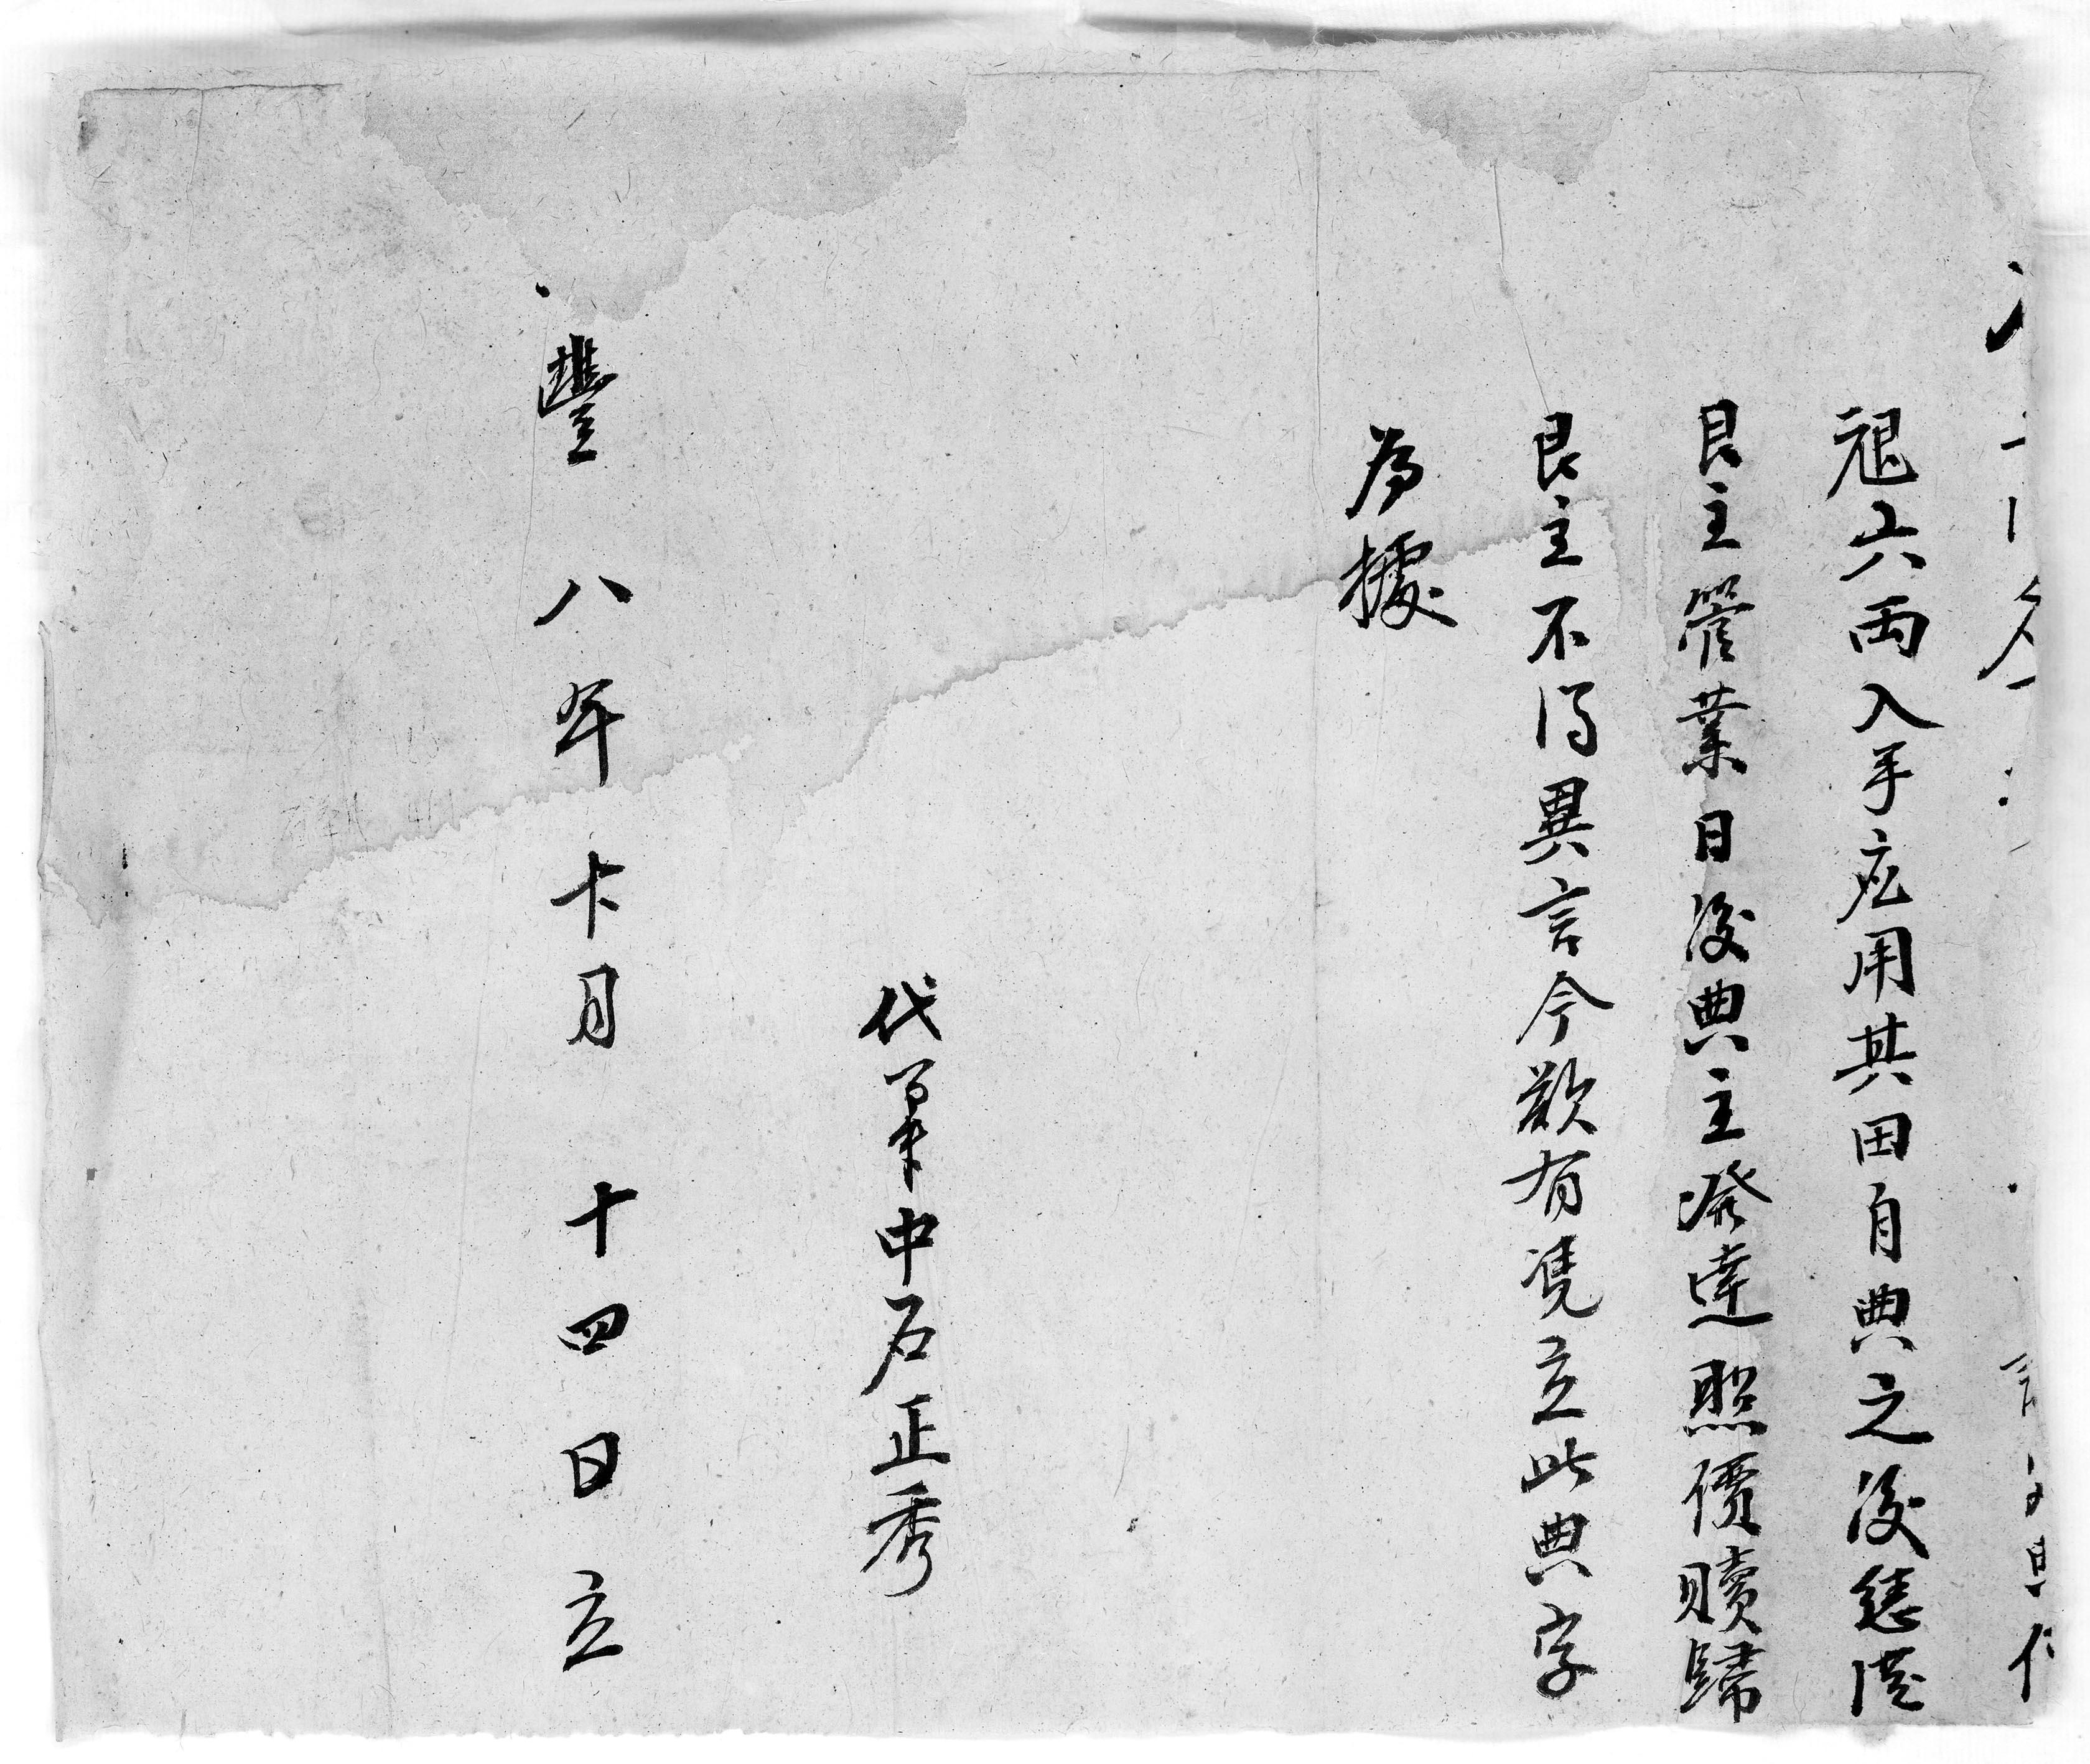 六両入手应用其田自典之後恁從
艮主管業日後典主發達照價贖歸
艮主不得異言今欲有凴立此典字
為據
代筆中石正秀
豐八年卡月十四日立